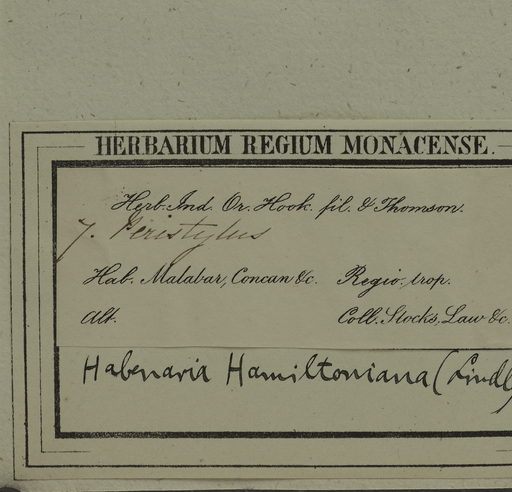 HERBARIUM REGIUM MONACENSE.
Herb. Ind. Or. Hook. fil. & Thomson.
7. Peristylus
Hab. Malabar, Concan &c. Regio. trop.
Alt. Coll. Stocks, Law &c.
Habenaria Hamiltoniana (Lindl